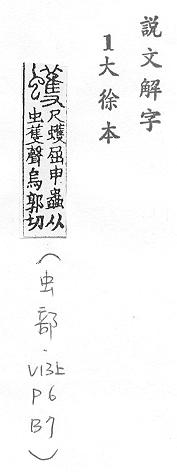 説文解字
1大徐本
蠖
尺蠖屈申蟲从
虫蒦聲烏郭切
(虫部.V13上P6B7)